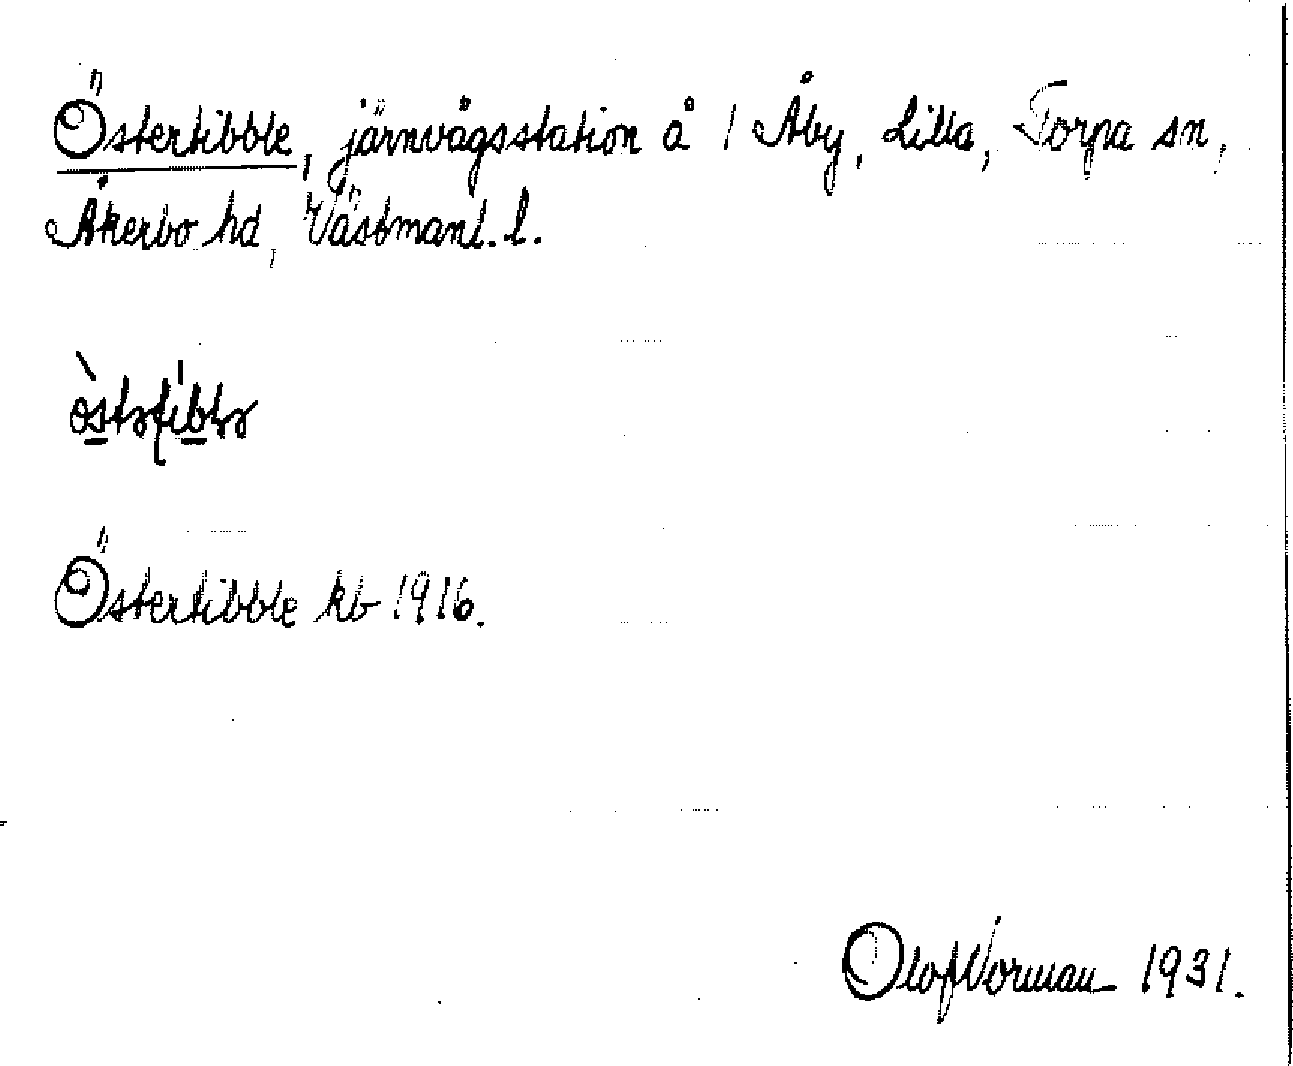 Östertibble, järnvägsstation å 1 Åby, Lilla, Torpa sn,
Åkerbo hd, Västmanl. l.
Östertibble kb 1916.
Olof Norman 1931.